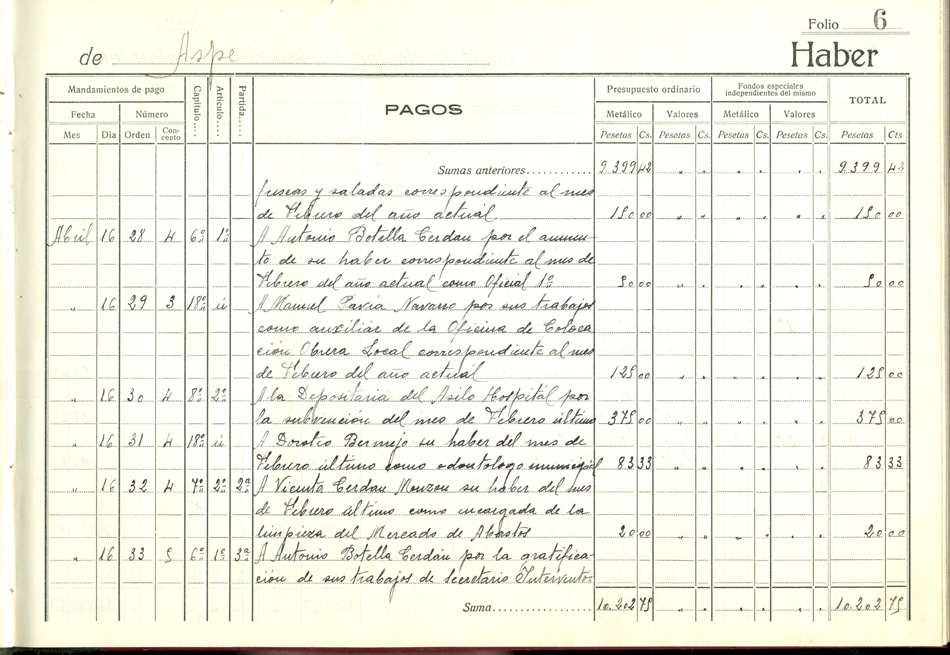 Folio 6
de Aspe
Haber
Mandamientos de pago
Capítulo....
Artículo....
Partida....
PAGOS
Presupuesto ordinario
Fondos especiales independientes del mismo
TOTAL
Fecha Número
Metálico Valores Metálico Valores
Mes Día Orden Concepto
Pesetas Cs. Pesetas Cs. Pesetas Cs. Pesetas Cs. Pesetas Cts.
Sumas anteriores............ 9.399 42 " " " " " " 9.399 42
frescas y saladas correspondiente al mes
de Febrero del año actual 150 00 " " " " " " 150 00
Abril 16 28 4 6º 1º A Antonio Botella Cerdan por el aumen-
to de su haber correspondiente al mes de
Febrero del año actual como Oficial 1º 50 00 " " " " " " 50 00
" 16 29 3 18º ú A Manuel Pavia Navarro por sus trabajos
como auxiliar de la Oficina de Coloca
ción Obrera Local correspondiente al mes
de Febrero del año actual 125 00 " " " " " " 125 00
" 16 30 4 8º 2º A la Depositaria del Asilo Hospital por
la subvención del mes de Febrero último 375 00 " " " " " " 375 00
" 16 31 4 18º ú A Doroteo Bermejo su haber del mes de
Febrero último como odontólogo municipal 83 33 " " " " " " 83 33
" 16 32 4 7º 2º 2ª A Vicenta Cerdan Monzon su haber del mes
de Febrero último como encargada de la
limpieza del Mercado de Abastos 20 00 " " " " " " 20 00
" 16 33 5 6º 1º 3ª A Antonio Botella Cerdán por la gratifica-
ción de sus trabajos de Secretario Interventor
Suma.................. 10.202 75 " " " " " " 10.202 75